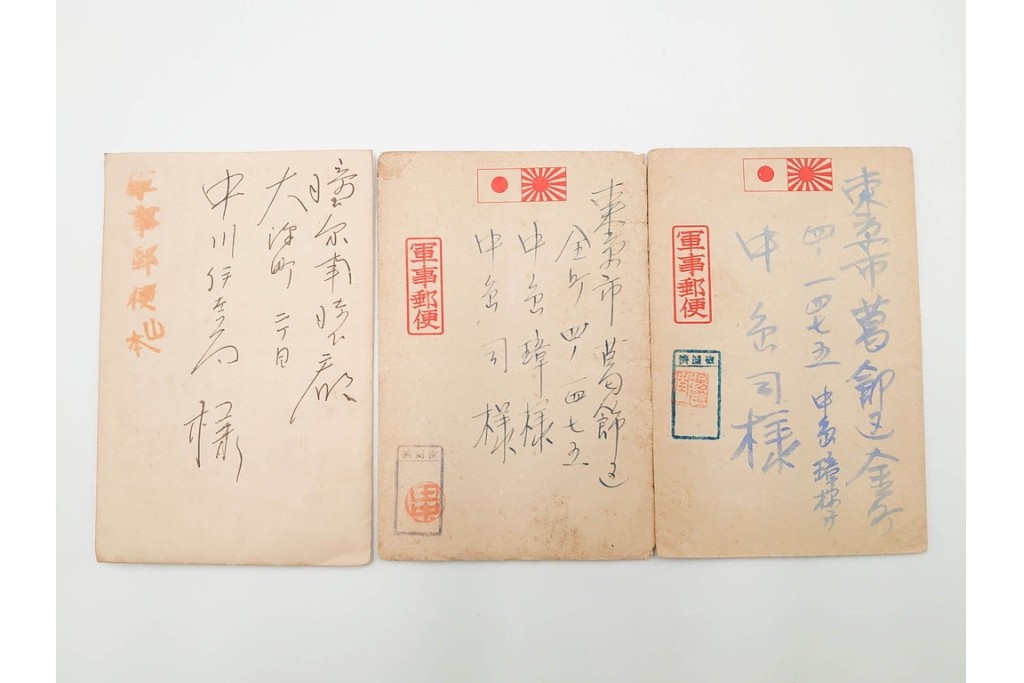 二丁目
中川伊
様
軍事郵便
東京市葛飾区
金町四ノ一四七五
中島璋様
中島司様
軍事郵便
検閲済
田中
東京市葛飾区金町
四ノ一四七五 中島璋様方
中島司様
軍事郵便
検閲済